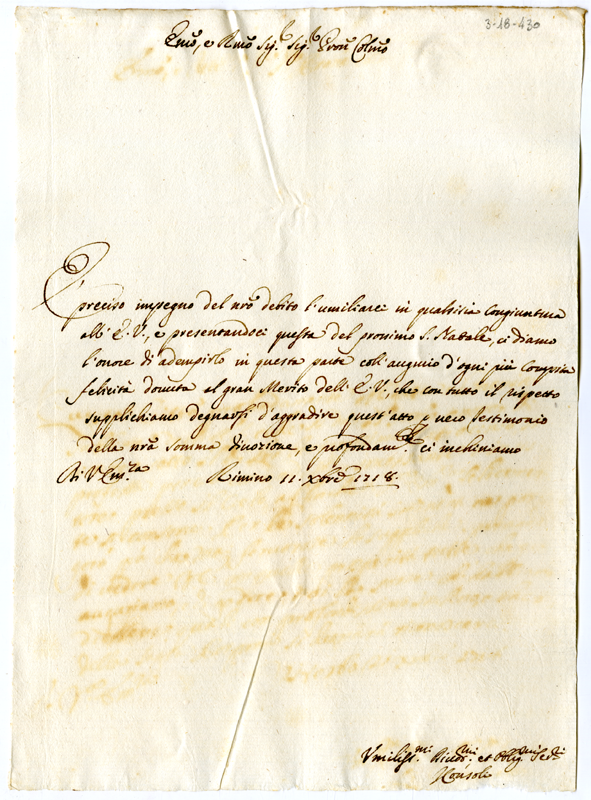 3-18-430
Emõ, e Rmõ Sig.r Sig.r Pron Colmõ
È preciso impegno del nrõ debito l'umiliarci in qualsisia congiuntura
all' E. V., e presentandoci questa del prossimo S. Natale, ci diamo
l'onore di adempirlo in questa parte coll'augurio d'ogni più compita
felicità douuta al gran Merito dell' E. V., che con tutto il rispetto
supplichiamo degnarsi d'aggradire quest'atto p uero testimonio
della nrã somma diuozione, e profondam.te ci inchiniamo
Di V. Em.za Rimino 11. Xbre 1718.
Vmiliss.mi Diuot.mi et Oblig.mi Ser.ri
I Consoli